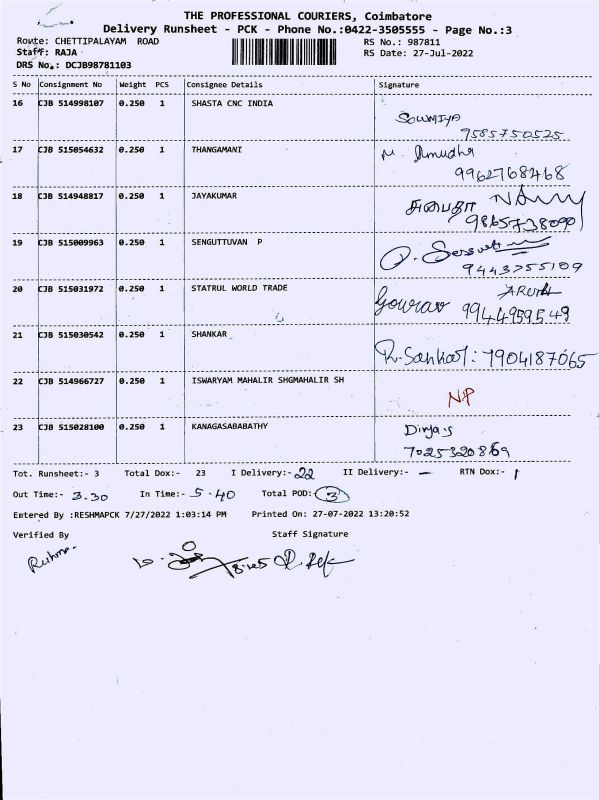 THE PROFESSIONAL COURIERS, Coimbatore
Delivery Runsheet - PCK - Phone No.:0422-3505555 - Page No.:3
Route: CHETTIPALAYAM ROAD
RS No.: 987811
Staff: RAJA
RS Date: 27-Jul-2022
DRS No.: DCJB98781103
S No Consignment No Weight PCS Consignee Details Signature
16 CJB 514998107 0.250 1 SHASTA CNC INDIA SOWMIYA
9585750525
17 CJB 515054632 0.250 1 THANGAMANI M. Amudha
9962768468
18 CJB 514948817 0.250 1 JAYAKUMAR
9865738090
19 CJB 515009963 0.250 1 SENGUTTUVAN P
9443755109
20 CJB 515031972 0.250 1 STATRUL WORLD TRADE
Gourav 9944959549
21 CJB 515030542 0.250 1 SHANKAR
R. Sankar: 7904187065
22 CJB 514966727 0.250 1 ISWARYAM MAHALIR SHGMAHALIR SH
NP
23 CJB 515028100 0.250 1 KANAGASABABATHY
7025320869
Tot. Runsheet:- 3 Total Dox:- 23 I Delivery:- 22 II Delivery:- — RTN Dox:- 1
Out Time:- 3.30 In Time:- 5.40 Total POD:- 3
Entered By :RESHMAPCK 7/27/2022 1:03:14 PM Printed On: 27-07-2022 13:20:52
Verified By Staff Signature